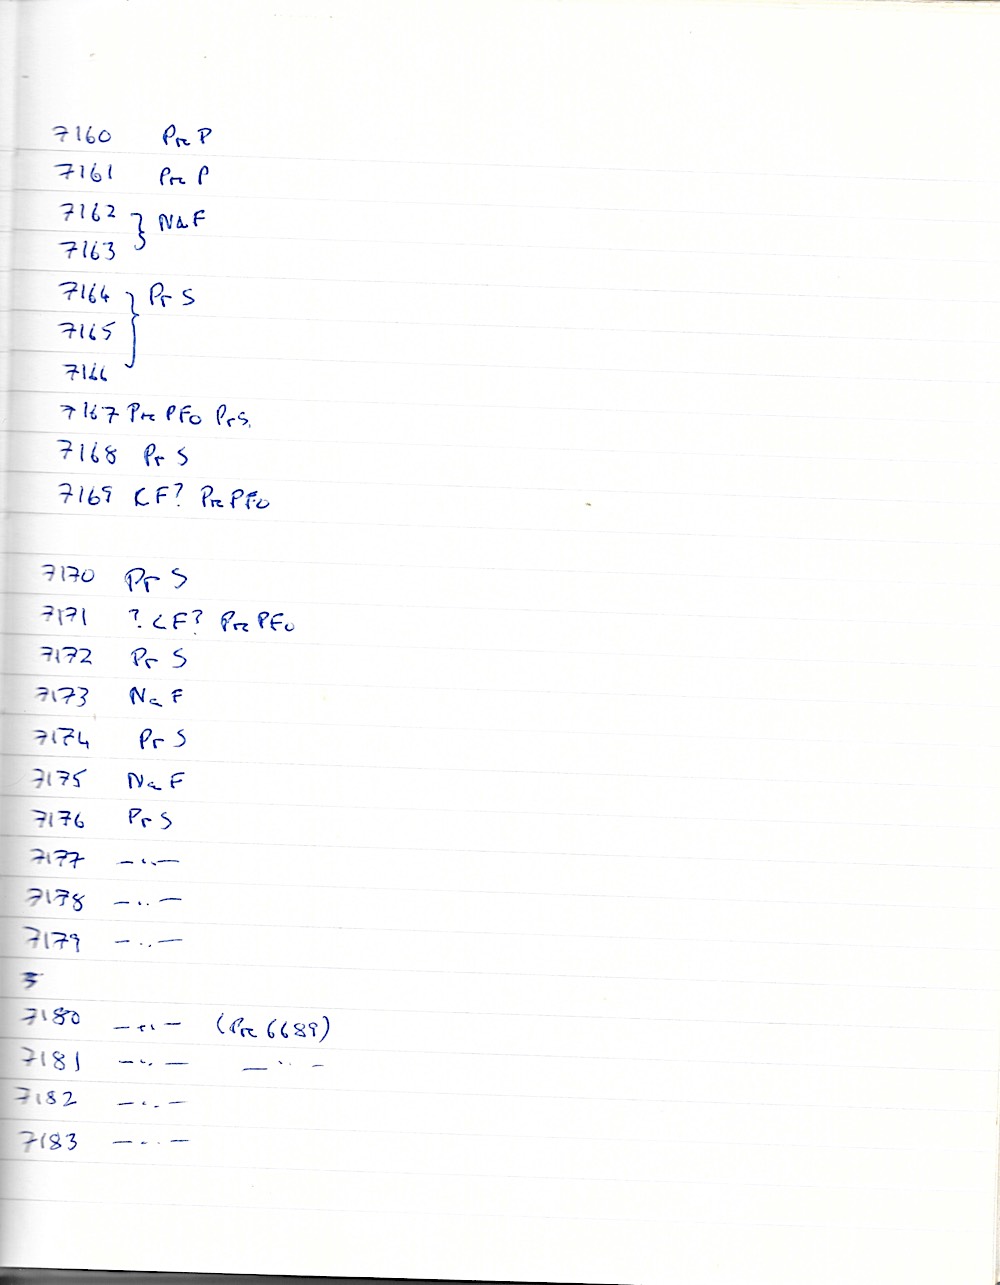 7160 Pre P
7161 Pre P
7162 } NaF
7163
7164 } Pr S
7165
7166
7167 Pre PFo PrS.
7168 Pr S
7169 CF? Pre PFo
7170 Pr S
7171 ? CF? Pre PFo
7172 Pr S
7173 Na F
7174 Pr S
7175 Na F
7176 Pr S
7177 —〃—
7178 —〃—
7179 —〃—
7180 —〃— (Pre 6689)
7181 —〃— —〃—
7182 —〃—
7183 —〃—